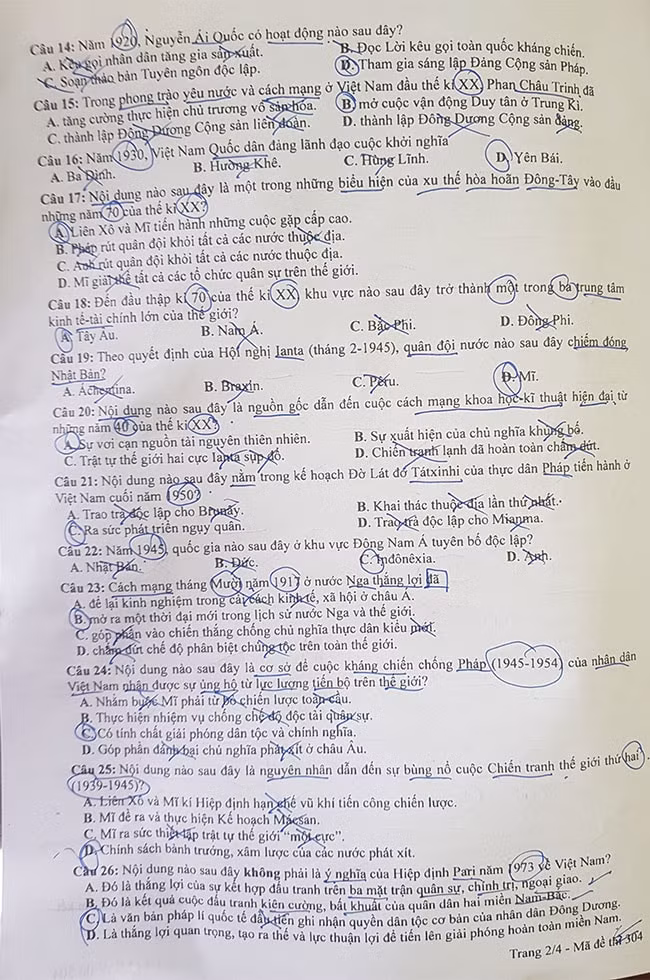 Câu 14: Năm 1920, Nguyễn Ái Quốc có hoạt động nào sau đây?
A. Kêu gọi nhân dân tăng gia sản xuất. B. Đọc Lời kêu gọi toàn quốc kháng chiến.
C. Soạn thảo bản Tuyên ngôn độc lập. D. Tham gia sáng lập Đảng Cộng sản Pháp.
Câu 15: Trong phong trào yêu nước và cách mạng ở Việt Nam đầu thế kỉ XX, Phan Châu Trinh đã
A. tăng cường thực hiện chủ trương vô sản hóa. B. mở cuộc vận động Duy tân ở Trung Kì.
C. thành lập Đông Dương Cộng sản liên đoàn. D. thành lập Đông Dương Cộng sản đảng.
Câu 16: Năm 1930, Việt Nam Quốc dân đảng lãnh đạo cuộc khởi nghĩa
A. Ba Đình. B. Hương Khê. C. Hùng Lĩnh. D. Yên Bái.
Câu 17: Nội dung nào sau đây là một trong những biểu hiện của xu thế hòa hoãn Đông-Tây vào đầu
những năm 70 của thế kỉ XX?
A. Liên Xô và Mĩ tiến hành những cuộc gặp cấp cao.
B. Pháp rút quân đội khỏi tất cả các nước thuộc địa.
C. Anh rút quân đội khỏi tất cả các nước thuộc địa.
D. Mĩ giải thể tất cả các tổ chức quân sự trên thế giới.
Câu 18: Đến đầu thập kỉ 70 của thế kỉ XX, khu vực nào sau đây trở thành một trong ba trung tâm
kinh tế-tài chính lớn của thế giới?
A. Tây Âu. B. Nam Á. C. Bắc Phi. D. Đông Phi.
Câu 19: Theo quyết định của Hội nghị Ianta (tháng 2-1945), quân đội nước nào sau đây chiếm đóng
Nhật Bản?
A. Áchentina. B. Braxin. C. Pêru. D. Mĩ.
Câu 20: Nội dung nào sau đây là nguồn gốc dẫn đến cuộc cách mạng khoa học-kĩ thuật hiện đại từ
những năm 40 của thế kỉ XX?
A. Sự vơi cạn nguồn tài nguyên thiên nhiên. B. Sự xuất hiện của chủ nghĩa khủng bố.
C. Trật tự thế giới hai cực Ianta sụp đổ. D. Chiến tranh lạnh đã hoàn toàn chấm dứt.
Câu 21: Nội dung nào sau đây nằm trong kế hoạch Đờ Lát đờ Tátxinhi của thực dân Pháp tiến hành ở
Việt Nam cuối năm 1950?
A. Trao trả độc lập cho Brunây. B. Khai thác thuộc địa lần thứ nhất.
C. Ra sức phát triển ngụy quân. D. Trao trả độc lập cho Mianma.
Câu 22: Năm 1945, quốc gia nào sau đây ở khu vực Đông Nam Á tuyên bố độc lập?
A. Nhật Bản. B. Đức. C. Inđônêxia. D. Anh.
Câu 23: Cách mạng tháng Mười năm 1917 ở nước Nga thắng lợi đã
A. để lại kinh nghiệm trong cải cách kinh tế, xã hội ở châu Á.
B. mở ra một thời đại mới trong lịch sử nước Nga và thế giới.
C. góp phần vào chiến thắng chống chủ nghĩa thực dân kiểu mới.
D. chấm dứt chế độ phân biệt chủng tộc trên toàn thế giới.
Câu 24: Nội dung nào sau đây là cơ sở để cuộc kháng chiến chống Pháp (1945-1954) của nhân dân
Việt Nam nhận được sự ủng hộ từ lực lượng tiến bộ trên thế giới?
A. Nhằm buộc Mĩ phải từ bỏ chiến lược toàn cầu.
B. Thực hiện nhiệm vụ chống chế độ độc tài quân sự.
C. Có tính chất giải phóng dân tộc và chính nghĩa.
D. Góp phần đánh bại chủ nghĩa phát xít ở châu Âu.
Câu 25: Nội dung nào sau đây là nguyên nhân dẫn đến sự bùng nổ cuộc Chiến tranh thế giới thứ hai
(1939-1945)?
A. Liên Xô và Mĩ kí Hiệp định hạn chế vũ khí tiến công chiến lược.
B. Mĩ đề ra và thực hiện Kế hoạch Mácsan.
C. Mĩ ra sức thiết lập trật tự thế giới "một cực".
D. Chính sách bành trướng, xâm lược của các nước phát xít.
Câu 26: Nội dung nào sau đây không phải là ý nghĩa của Hiệp định Pari năm 1973 về Việt Nam?
A. Đó là thắng lợi của sự kết hợp đấu tranh trên ba mặt trận quân sự, chính trị, ngoại giao.
B. Đó là kết quả cuộc đấu tranh kiên cường, bất khuất của quân dân hai miền Nam-Bắc.
C. Là văn bản pháp lí quốc tế đầu tiên ghi nhận quyền dân tộc cơ bản của nhân dân Đông Dương.
D. Là thắng lợi quan trọng, tạo ra thế và lực thuận lợi để tiến lên giải phóng hoàn toàn miền Nam.
Trang 2/4 - Mã đề thi 304